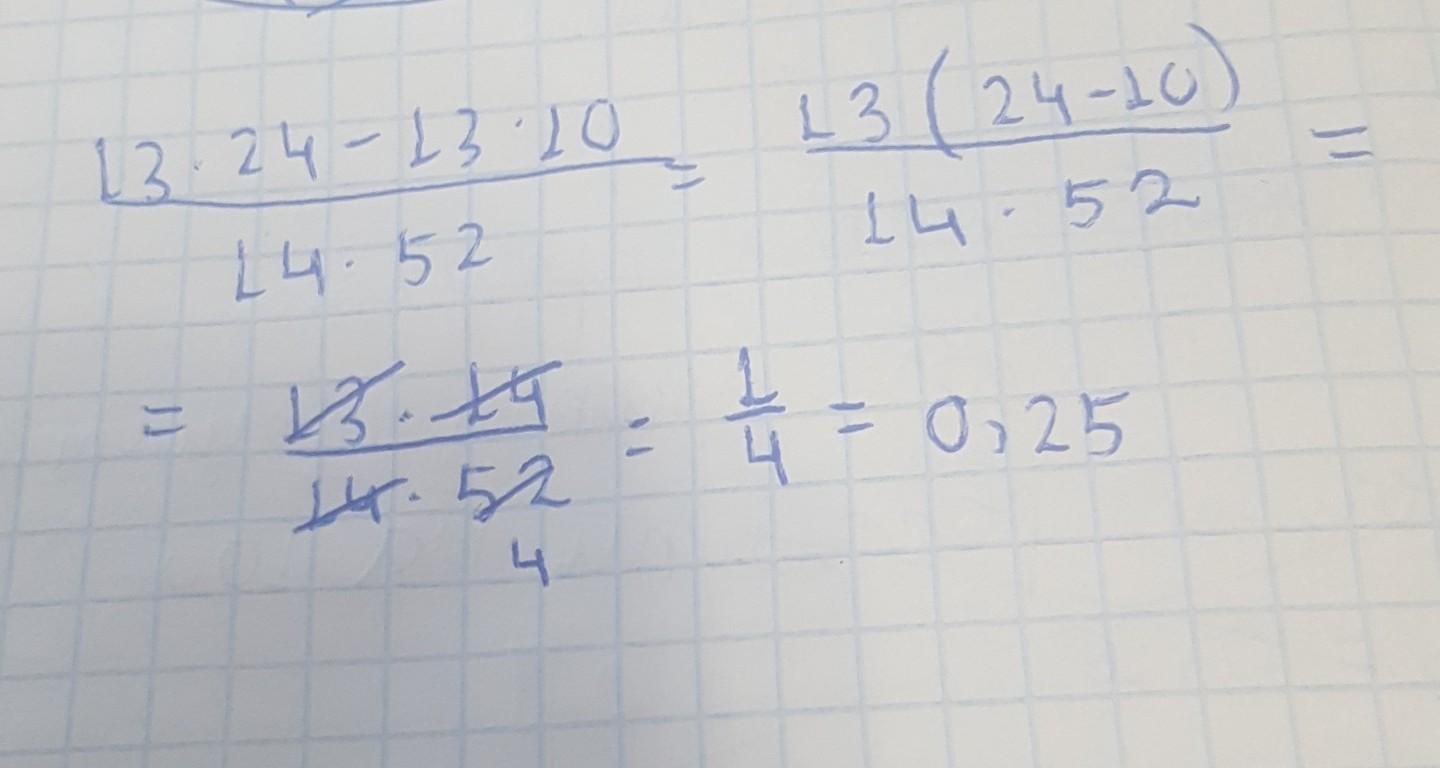 (13·24-13·10)/(14·52) = 13(24-10)/(14·52) =
= (13·14)/(14·52) 4 = 1/4 = 0,25